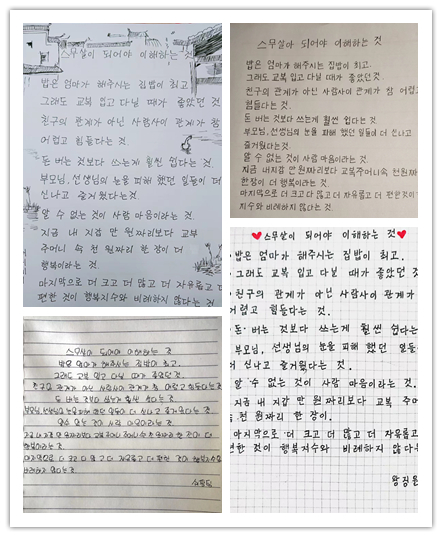 스무살이 되어야 이해하는 것
밥은 엄마가 해주시는 집밥이 최고.
그래도 교복 입고 다닐 때가 좋았던 것
친구의 관계가 아닌 사람사이 관계가 참
어렵고 힘들다는 것.
돈 버는 것보다 쓰는게 훨씬 쉽다는 것.
부모님, 선생님의 눈을 피해 했던 일들이 더
신나고 즐거웠다는 것.
알 수 없는 것이 사람 마음이라는 것.
지금 내 지갑 만 원짜리보다 교복
주머니 속 천 원짜리 한 장이 더
행복이라는 것.
마지막으로 더 크고 더 많고 더 자유롭고 더
편한 것이 행복지수와 비례하지 않다는 것
스무살아 되어야 이해하는 것
밥은 엄마가 해주시는 집밥이 최고.
그래도 교복 입고 다닐 때가 좋았다것.
친구의 관계가 아닌 사람사이 관계가 참 어렵고
힘들다는 것.
돈 버는 것보다 쓰는게 훨씬 쉽다는 것.
부모님, 선생님의 눈을 피해 했던 일들이 더 신나고
즐거웠다는 것.
알 수 없는 것이 사람 마음이라는 것.
지금 내지갑 만원짜리보다 교복주머니속 천원짜리
한장이 더 행복이라는 것.
마지막으로 더 크고 더 많고 더 자유롭고 더 편한것이 행복
지수와 비례하지 않다는 것.
스무살이 되어야 이해하는 것
밥은 엄마가 해주시는 집밥이 최고.
그래도 교복 입고 다닐 때가 좋았던 것
친구의 관계가 아닌 사람사이 관계가 참 어렵고 힘들다는 것
돈 버는 것보다 쓰는게 훨씬 쉽다는 것.
부모님, 선생님의 눈을 피해 했던 일들이 더 신나고 즐거웠다는 것.
알수 없는 것이 사람 마음이라는 것.
지금 내 지갑 만 원짜리보다 교복 주머니 속 천 원짜리 한 장이 더
행복이라는 것.
마지막으로 더 크고 더 많고 더 자유롭고 더 편한 것이 행복지수와
비례하지 않다는 것.
스무살이 되어야 이해하는 것
밥은 엄마가 해주시는 집밥이 최고.
그래도 교복 입고 다닐 때가 좋았던 것
친구의 관계가 아닌 사람사이 관계가
어렵고 힘들다는 것.
돈 버는 것보다 쓰는게 훨씬 쉽다는
부모님, 선생님의 눈을 피해 했던 일들
더 신나고 즐거웠다는 것.
알 수 없는 것이 사람 마음이라는 것.
지금 내 지갑 만 원짜리보다 교복 주머
속 천 원짜리 한 장이.
마지막으로 더 크고 더 많고 더 자유롭고
편한 것이 행복지수와 비례하지 않다는
왕징원